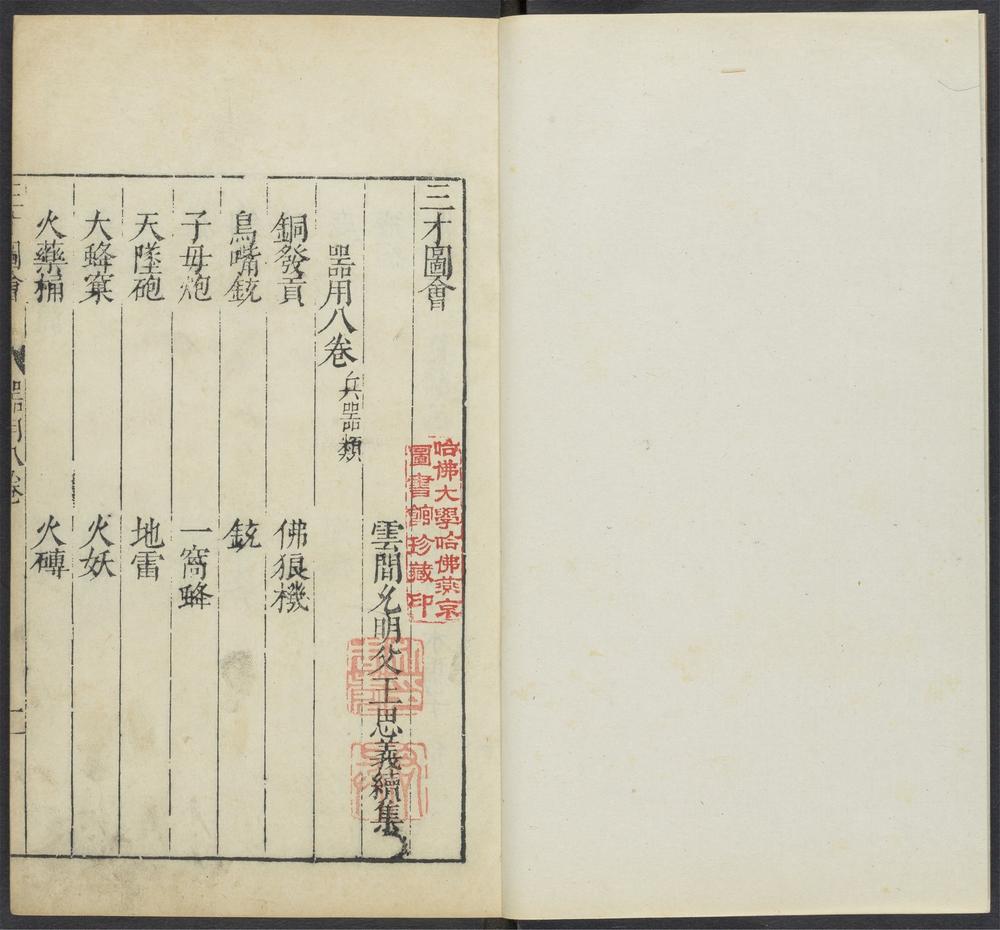 三才圖會
雲間允明父王思義續集
器用八卷 兵器類
銅發貢 佛狼機
鳥嘴銃 銃
子母炮 一窩蜂
天墜砲 地雷
大蜂窠 火妖
火藥桶 火磚
圖會 器用八卷 一
哈佛大學哈佛燕京
圖書館珍藏印